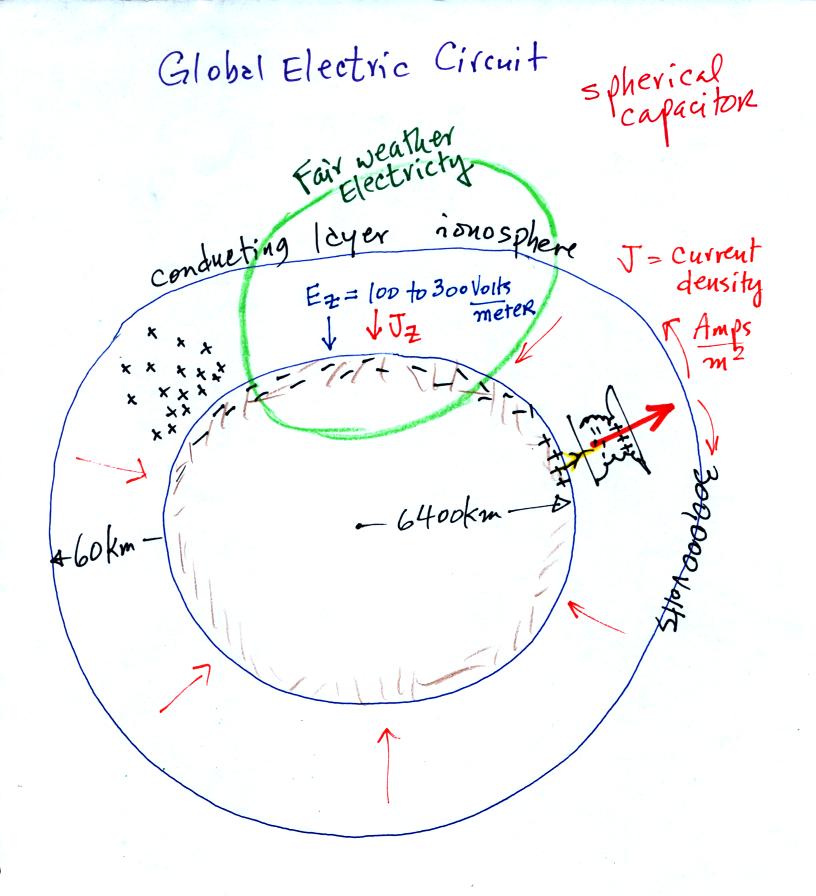 Global Electric Circuit
spherical
capacitor
Fair weather
Electricty
conducting layer ionosphere
J = current
density
Amps
m²
Ez = 100 to 300 Volts
meter
Jz
6400km
60km
300,000 volts